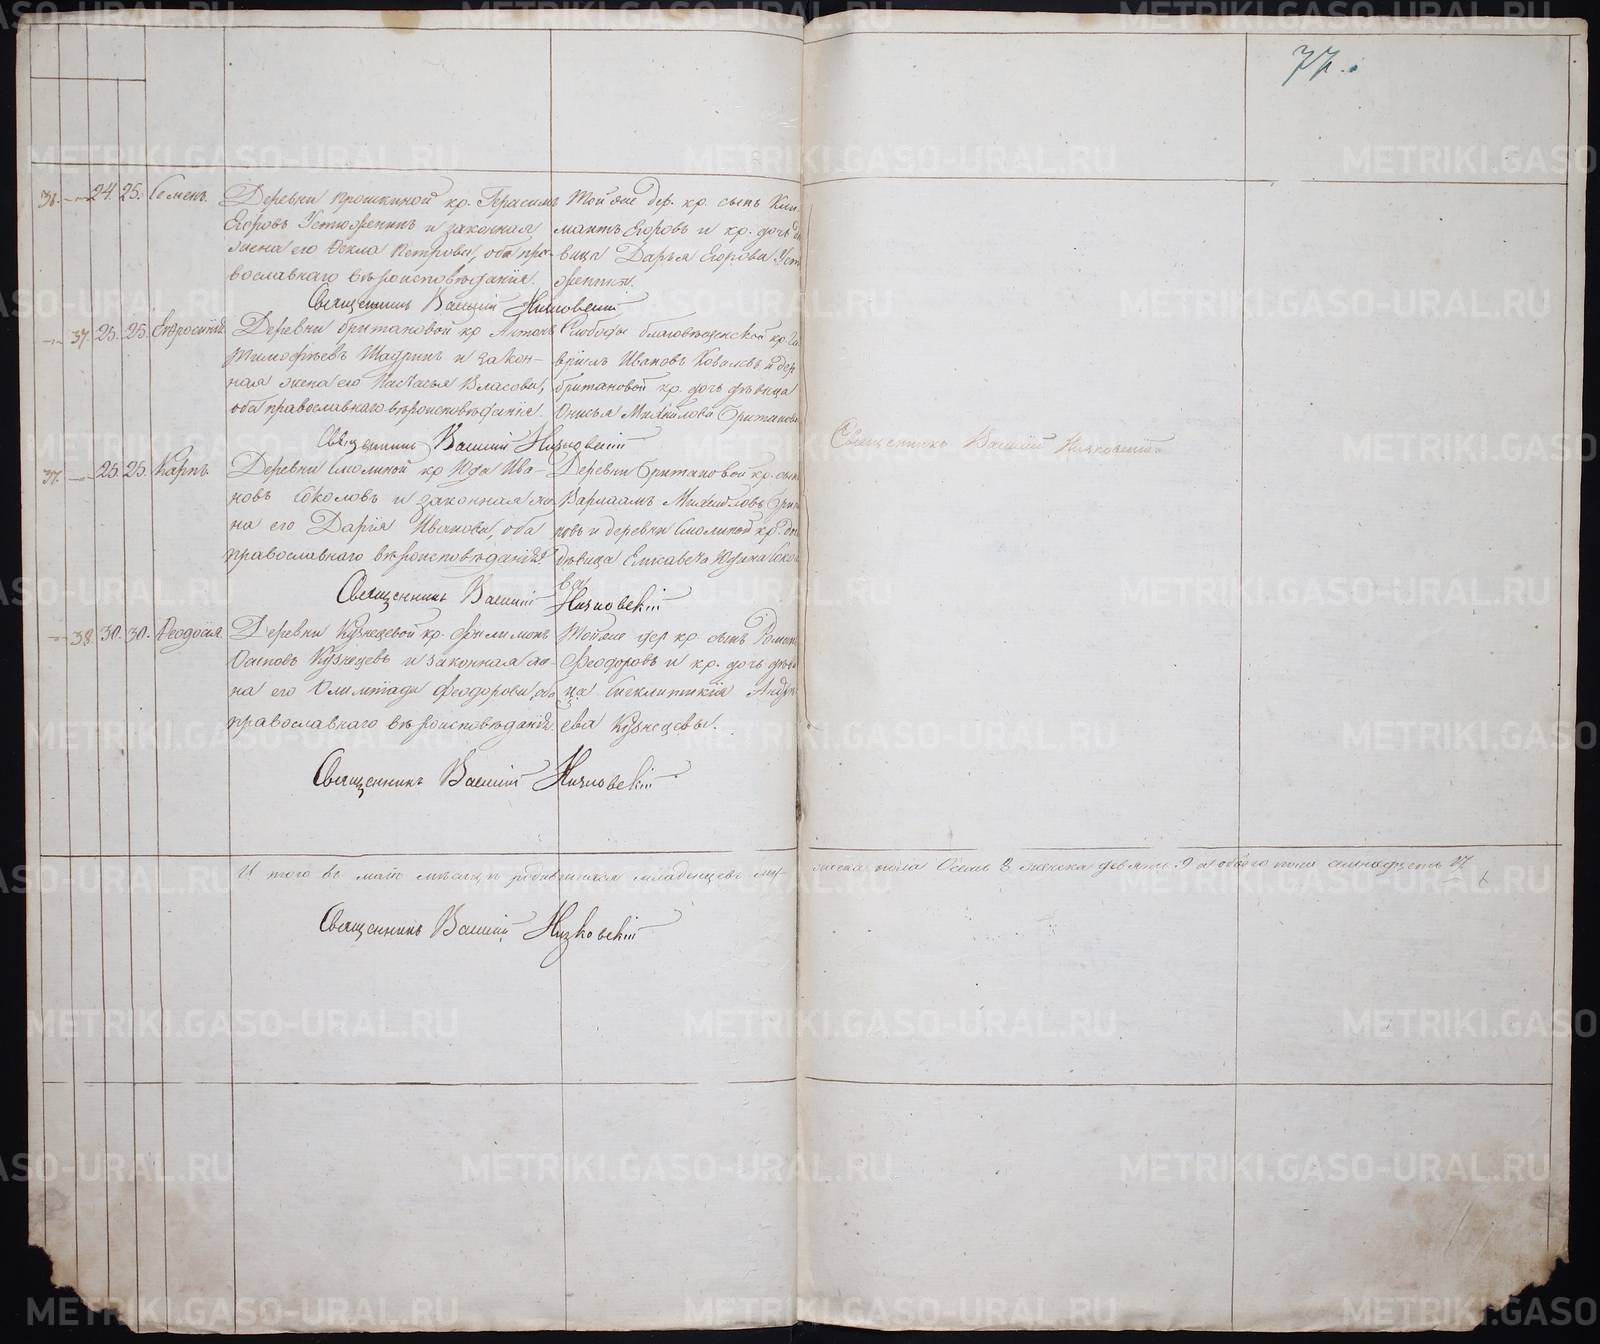 77.
36. — 24. 25. Семенъ.
Деревни Прошкиной кр. Герасимъ
Егоровъ Устюженинъ и законная
жена его Фекла Петрова, оба пра-
вославнаго вѣроисповѣданія.
Той же дер. кр. сынъ Кли-
мантъ Егоровъ и кр. дочь дѣ
вица Дарья Егорова Устю
женины.
Священникъ Василій Низковскій
— 37. 25. 25. Евросинія
Деревни Британовой кр. Антонъ
Тимофѣевъ Шадринъ и закон-
ная жена его Настасья Власова,
оба православнаго вѣроисповѣданія.
Слободы Благовѣщенской кр. Га
вріилъ Ивановъ Ковалевъ и дер
Британовой кр. дочь дѣвица
Онисья Михайлова Британова
Священникъ Василій Низковскій
37. — 25. 25. Карпъ.
Деревни Смолиной кр Юда Ива-
новъ Соколовъ и законная же
на его Дарія Иванова, оба
православнаго вѣроисповѣданія.
Деревни Британовой кр. сынъ
Варлаамъ Михайловъ Брита
новъ и деревни Смолиной кр. дочь
дѣвица Елисавета Юдина Соко
ва
Священникъ Василій Низковскій
Священникъ Василій Низковскій
— 38. 30. 30. Феодосія.
Деревни Кузнецевой кр. Филимонъ
Осиповъ Кузнецевъ и законная же
на его Олимпіада Феодорова, оба
православнаго вѣроисповѣданія.
Той же дер кр. сынъ Романъ
Феодоровъ и кр. дочь дѣви
ца Синклитикія Андре
ева Кузнецевы.
Священникъ Василій Низковскій
И того въ маіѣ мѣсяцѣ родившихся младенцевъ му- жеска пола Осемь 8 женска девять 9 а обоего пола семнадцать 17
Священникъ Василій Низковскій
METRIKI.GASO-URAL.RU